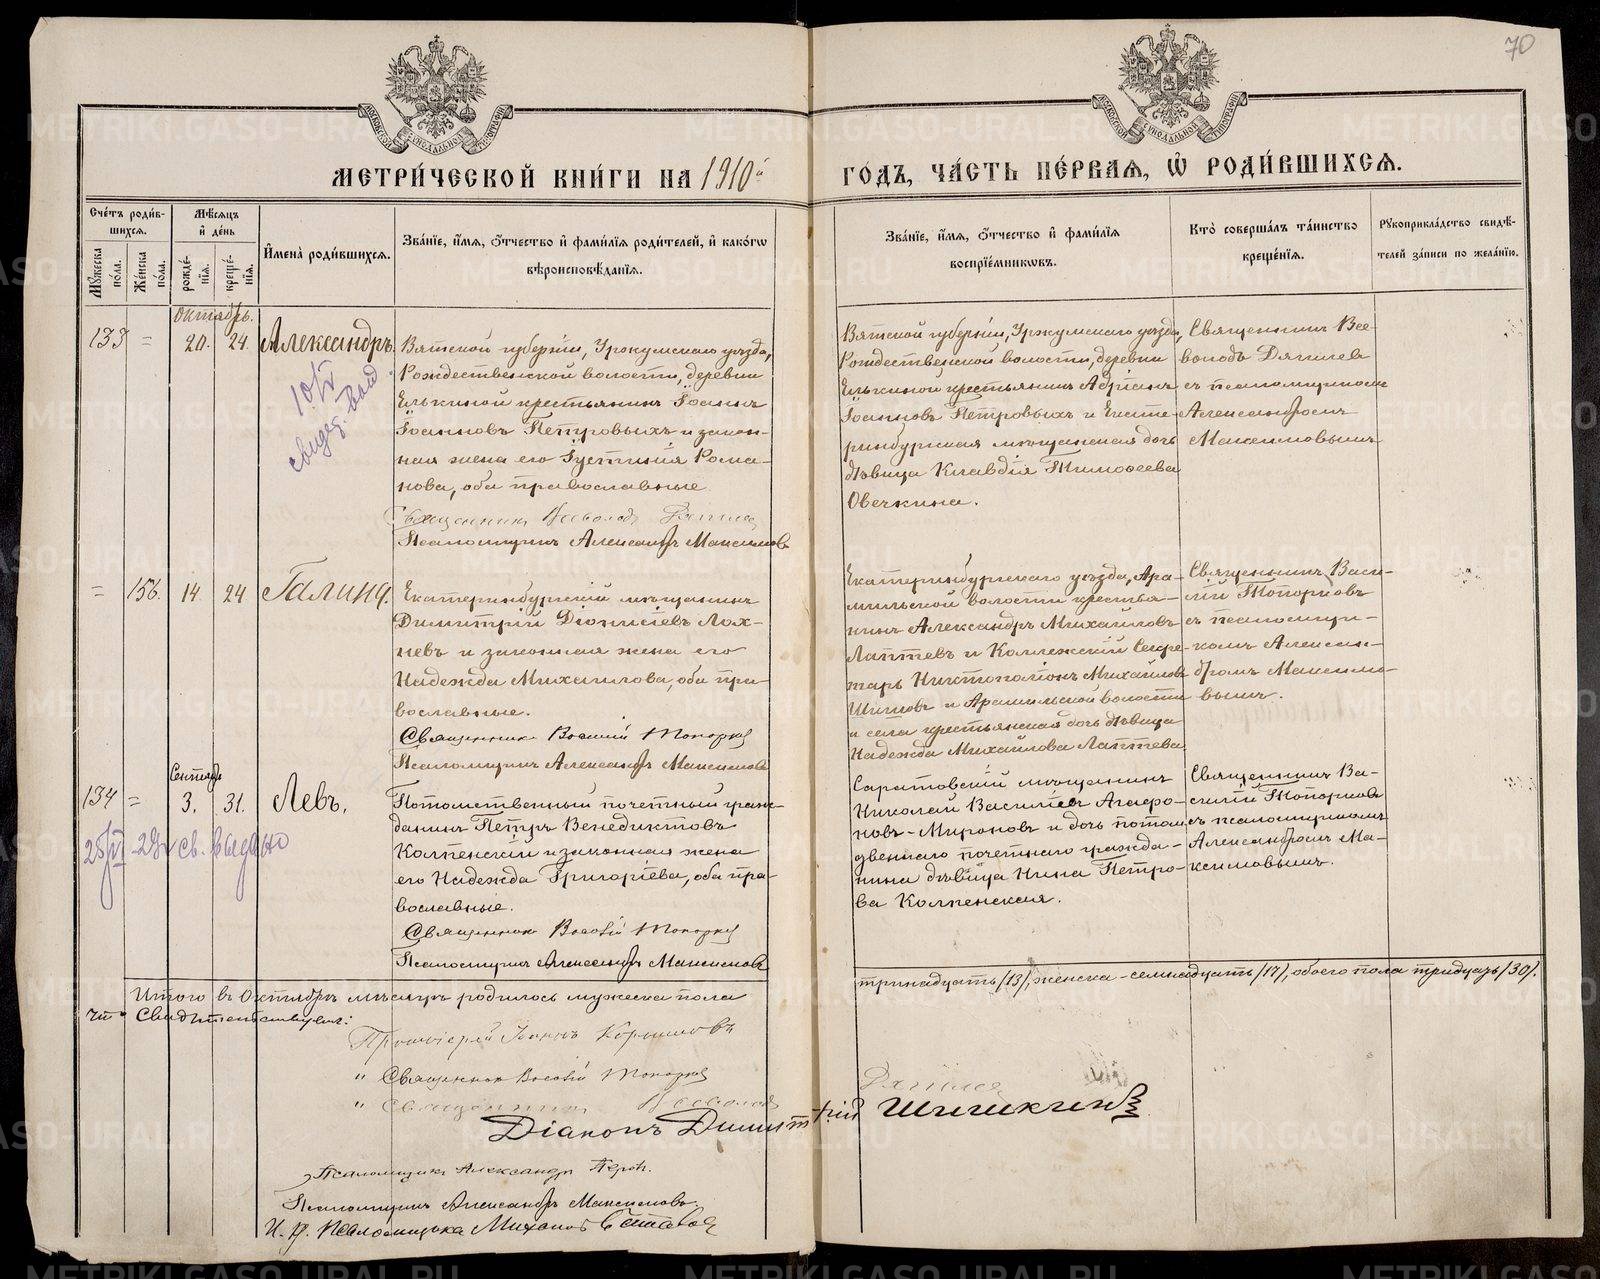 70
МОСКОВСКОЙ СѴНОДАЛЬНОЙ ТИПОГРАФІИ
МОСКОВСКОЙ СѴНОДАЛЬНОЙ ТИПОГРАФІИ
МЕТРИ́ЧЕСКОЙ КНИ́ГИ НА 1910й
ГО́ДЪ, ЧА́СТЬ ПЕ́РВАЯ, Ѡ҆ РОДИ́ВШИХСЯ.
Сче́тъ роди́в-
шихся.
Мѣ́сяцъ
и҆ де́нь
Мꙋ́жеска
по́ла.
Же́нска
по́ла.
рожде́-
нїя.
креще́-
нїя.
И҆мена̀ роди́вшихся.
Зва́нїе, и҆́мя, ѻ҆́тчество и҆ фами́лїя роди́телей, и҆ како́гѡ
вѣроисповѣ́данїя.
Зва́нїе, и҆́мя, ѻ҆́тчество и҆ фами́лїя
воспрїе́мникѡвъ.
Кто̀ соверша́лъ та́инство
креще́нїя.
Рꙋкоприкла́дство свидѣ́-
телей за́писи по жела́нїю.
Октябрь.
133 = 20. 24. Александръ.
Вятской губерніи, Уржумскаго уѣзда,
Рождественской волости, деревни
Елькиной крестьянинъ Іоаннъ
Іоанновъ Петровыхъ и закон-
ная жена его Іустинія Рома-
нова, оба православные.
Священникъ Всеволодъ
Псаломщикъ Александръ Максимовъ
свидѣт. выд.
Вятской губерніи, Уржумскаго уѣзда,
Рождественской волости, деревни
Елькиной крестьянинъ Адріанъ
Іоанновъ Петровыхъ и Екате-
ринбургская мѣщанская дочь
дѣвица Клавдія Тимоѳеева
Овечкина.
Священникъ Все-
володъ
съ псаломщикомъ
Александромъ
Максимовымъ
= 156. 14. 24. Галина.
Екатеринбургскій мѣщанинъ
Димитрій Діонисіевъ Лох-
невъ и законная жена его
Надежда Михаилова, оба пра-
вославные.
Священникъ Василій Топорковъ
Псаломщикъ Александръ Максимовъ
Екатеринбургскаго уѣзда, Ара-
мильской волости крестья-
нинъ Александръ Михайловъ
Лаптевъ и Коллежскій Секре-
тарь Никтополіонъ Михайловъ
Шитовъ и Арамильской волости
и села крестьянская дочь дѣвица
Надежда Михайлова Лаптева
Священникъ Васи-
лій Топорковъ
съ псаломщи-
комъ Алексан-
дромъ Максимо-
вымъ.
Сентябрь
134 = 3. 31. Левъ.
св. выдано
Потомственный почетный граж-
данинъ Петръ Венедиктовъ
Колпенскій и законная жена
его Надежда Григоріева, оба пра-
вославные.
Священникъ Василій Топорковъ
Псаломщикъ Александръ Максимовъ
Саратовскій мѣщанинъ
Николай Василіевъ Агафо-
новъ-Мироновъ и дочь потом-
двеннаго почетнаго гражда-
нина дѣвица Нина Петро-
ва Колпенская.
Священникъ Ва-
силій Топорковъ
съ псаломщикомъ
Александромъ Ма-
ксимовымъ.
Итого въ Октябрѣ мѣсяцѣ родилось мужеска пола
тринадцать /13/, женска - семнадцать /17/, обоего пола тридцать /30/.
Что Свидѣтельствуемъ:
Протоіерей Іоаннъ
" Священникъ Василій Топорковъ
" Священникъ Всеволодъ
Діаконъ Димитрій Шишкинъ
Псаломщикъ Александръ
Псаломщикъ Александръ Максимовъ
И. д. псаломщика Михаилъ
METRIKI.GASO-URAL.RU